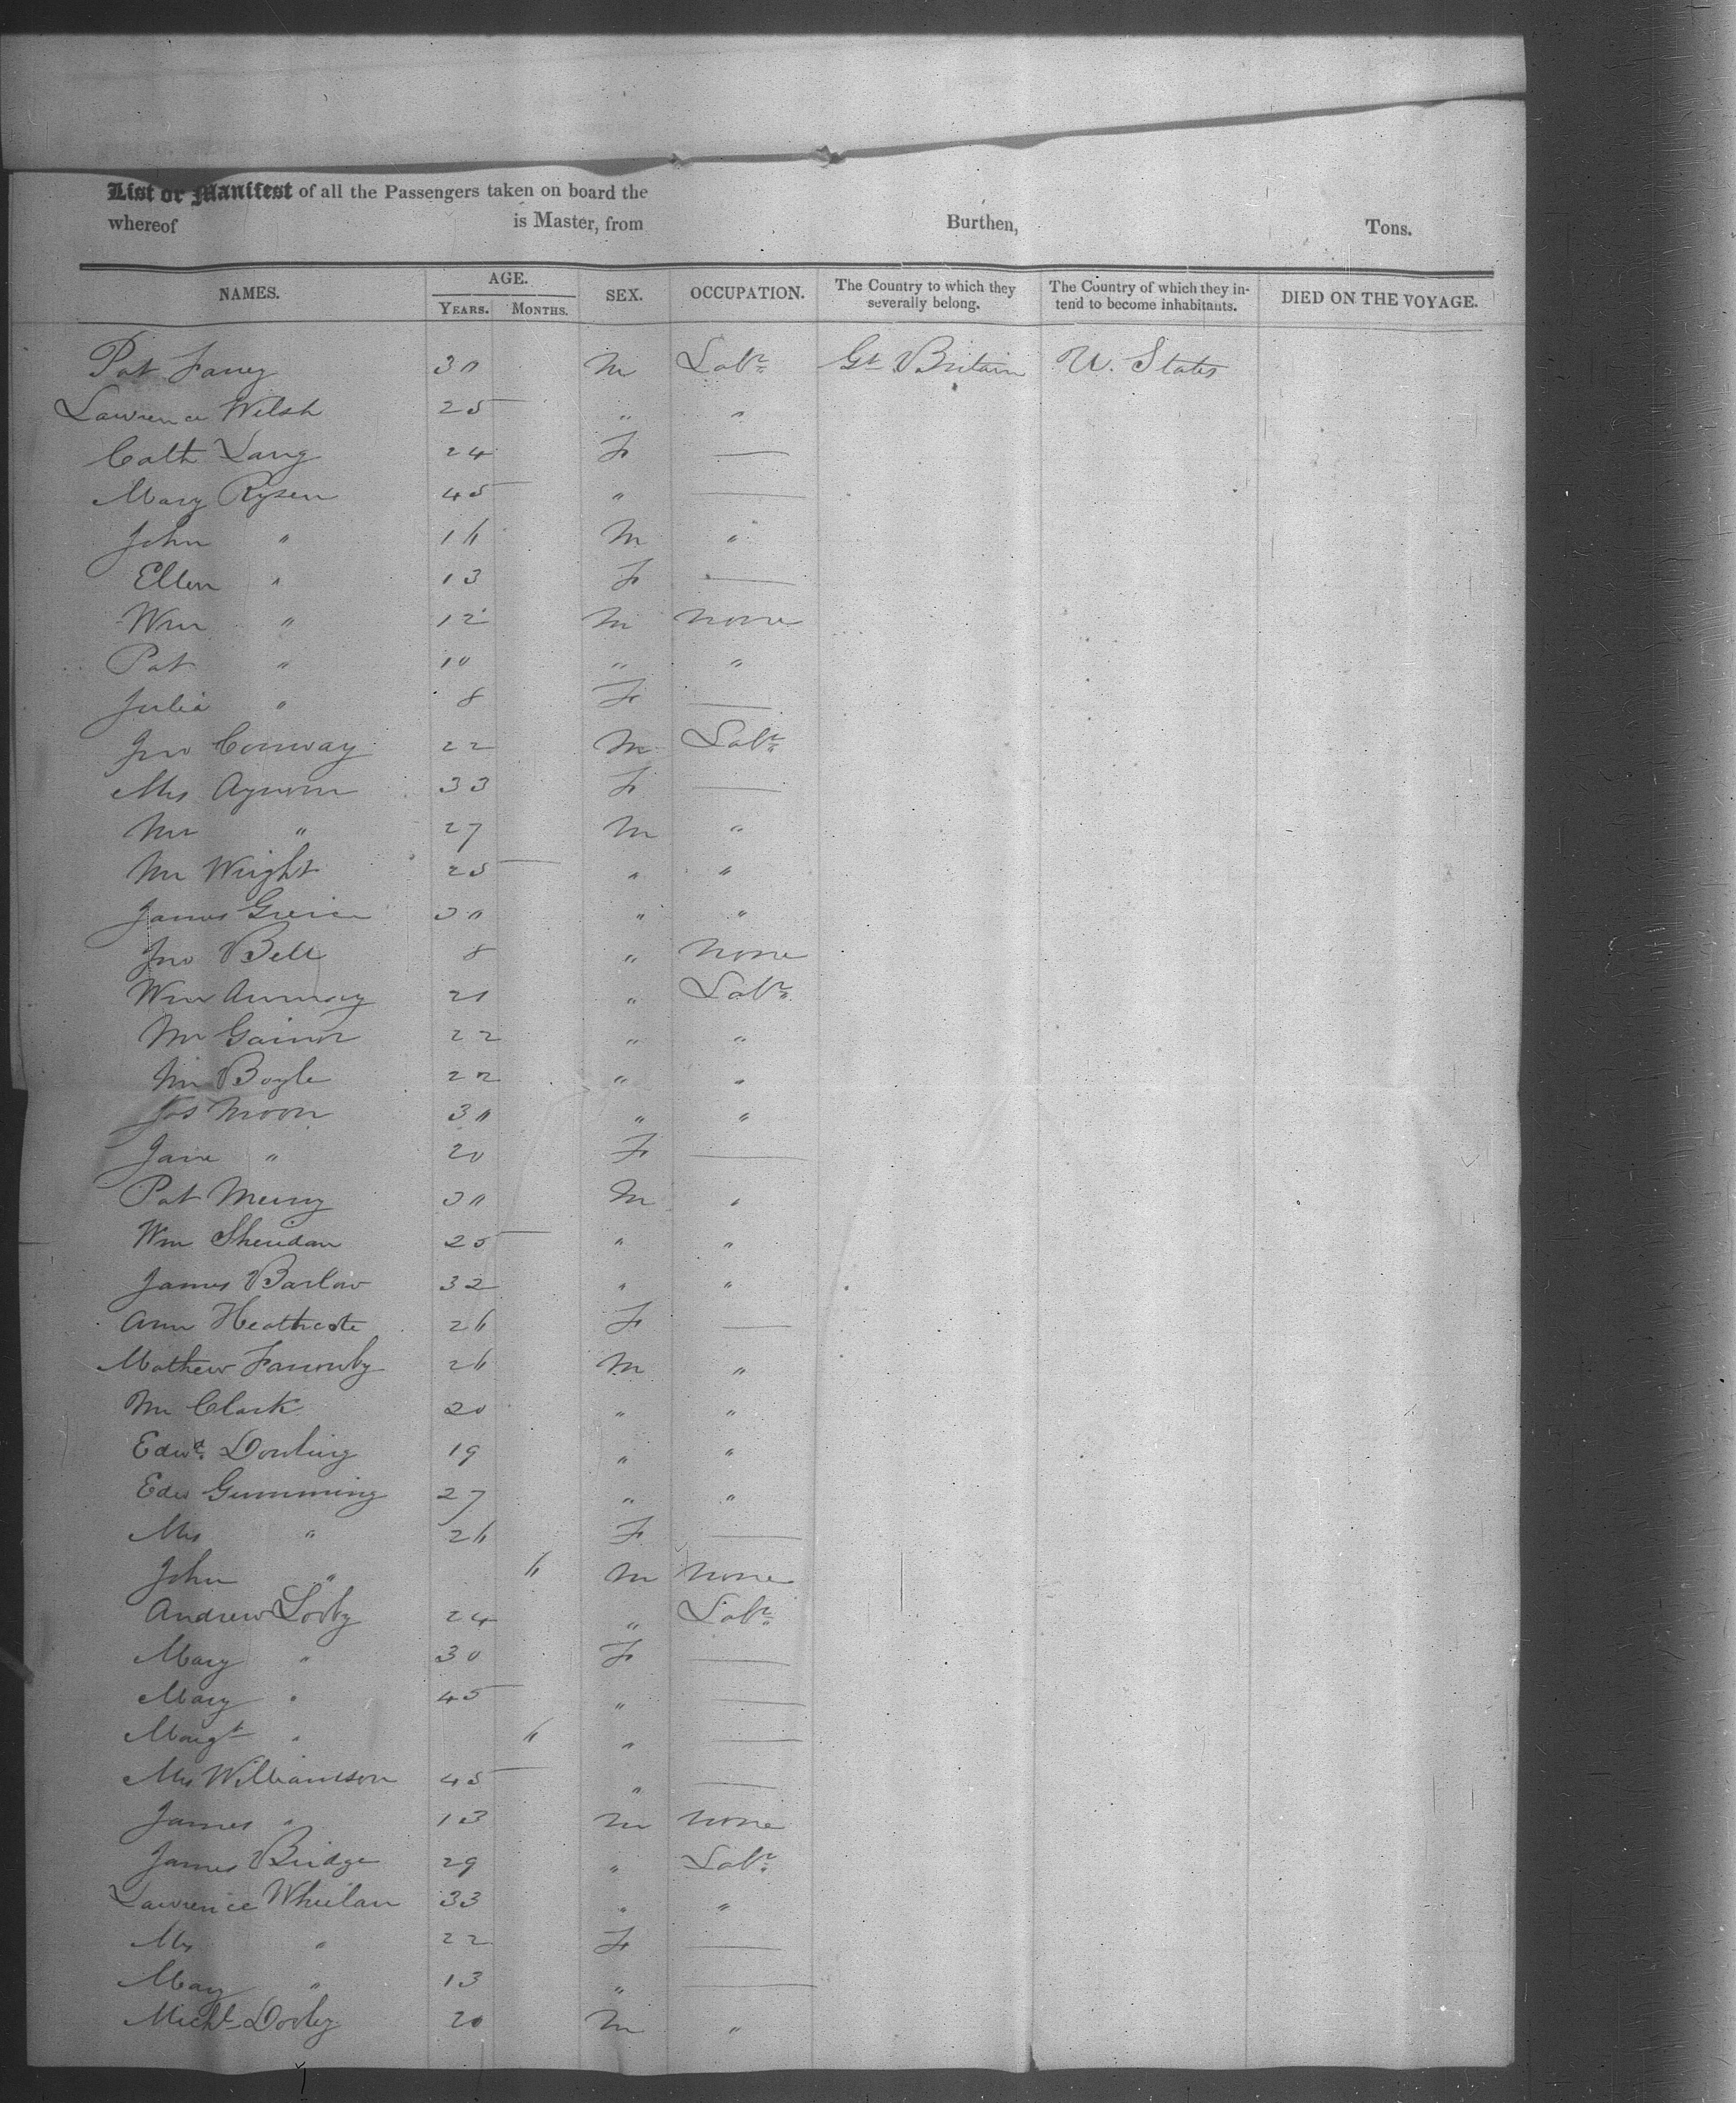 List or Manifest of all the Passengers taken on board the
whereof is Master, from Burthen, Tons.
NAMES. AGE. YEARS. MONTHS. SEX. OCCUPATION. The Country to which they severally belong. The Country of which they intend to become inhabitants. DIED ON THE VOYAGE.
Pat 30 M Labr Gt Britain U. States
Lawrence Welsh 25 " "
Cath Lang 24 F —
Mary Rysen 45 " —
John " 16 M "
Ellen " 13 F —
Wm " 12 M none
Pat " 10 " "
Julia " 8 F —
Jno Conway 22 M Labr
Mrs 33 F —
Mr " 27 M "
Mr Wright 25 " "
James 30 " "
Jno Bell 8 " none
Wm 21 " Labr
Mr Gainor 22 " "
Mr Boyle 22 " "
Jos Moon 30 " "
Jane " 20 F —
Pat 30 M "
Wm Sheridan 25 " "
James Barlow 32 " "
Ann Heathcote 26 F —
Mathew 26 M "
Mr Clark 20 " "
Edwd Dowling 19 " "
Edw Gumming 27 " "
Mrs " 26 F —
John " 6 M none
Andrew Looby 24 " Labr
Mary " 30 F —
Mary " 45 " —
Margt " 6 " —
Mrs Williamson 45 " —
James " 13 M none
James Bridge 29 " Labr
Lawrence Whelan 33 " "
Mrs " 22 F —
Mary " 13 " —
Michl Dooley 20 M "